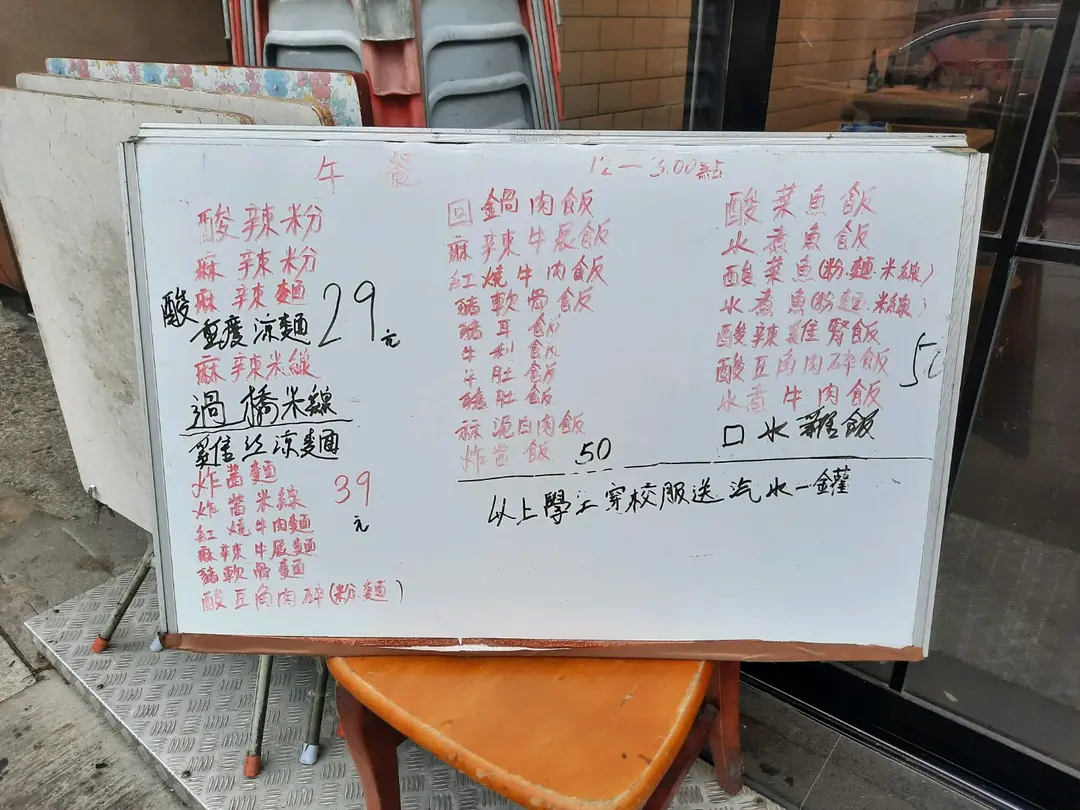 午餐 12一3.00點
酸辣粉
麻辣粉
酸麻辣麵
重慶涼麵 29元
麻辣米線
過橋米線
雞丝涼麵
炸酱麵
炸酱米線 39元
紅燒牛肉麵
麻辣牛展麵
豬軟骨麵
酸豆角肉碎(粉.麵)
回鍋肉飯
麻辣牛展飯
紅燒牛肉飯
豬軟骨飯
豬耳飯
牛利飯
羊肚飯
豬肚飯
蒜泥白肉飯
炸酱飯 50
酸菜魚飯
水煮魚飯
酸菜魚(粉.麵.米線)
水煮魚(粉.麵.米線)
酸辣雞腎飯
酸豆角肉碎飯
水煮牛肉飯
口水雞飯
以上學生穿校服送汽水一罐